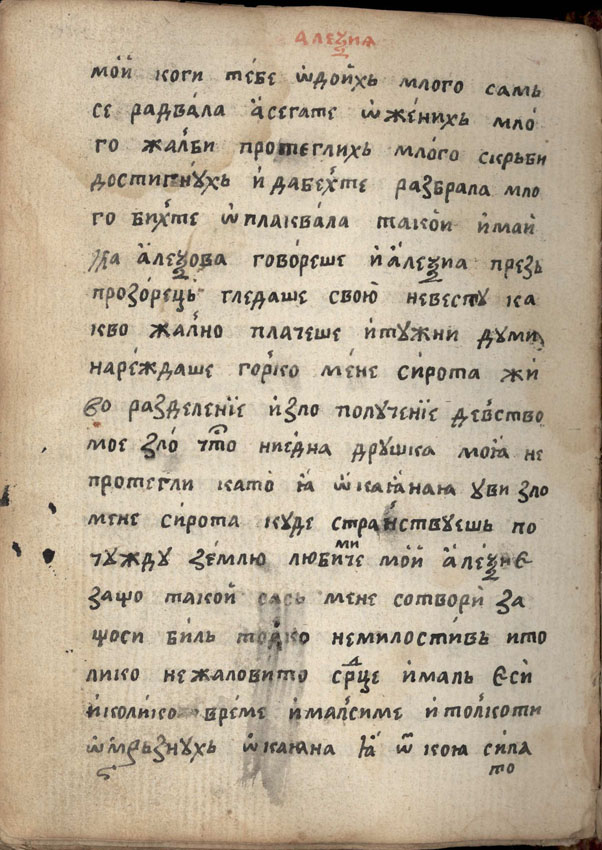 алеѯиѧ
мо́й коги те́бе ѡдои́хь млого самь
се радва́ла а҆сегате ѡже́нихь мло́
го жа́лби протеглихь мло́го скрьби
дости́гнꙋхь и҆дабе́хте разбрала мло
го би́хте ѡплаква́ла тако́и и҆май
ка а҆ле́ѯова гово́реше и҆а҆ле́ѯиа презь
прозо́рець гледаше свою̀ неве́стꙋ ка
кво жа́лно пла́чеше и҆тꙋжни дꙋми
наре́ждаше го́рко ме́не си́рота жи́
во разделе́нїе и҆зло полꙋче́нїе де́вство
мое зло̀ что ниедна дрꙋшка мои́ꙗ не
протегли като̀ ꙗ҆ ѡ҆каꙗ́наꙗ ꙋви зло
мене си́рота кꙋде стра́нствꙋешь по
чꙋждꙋ зе́млю люби́ми че мо́й а҆ле́ѯие
защо такой сась мене сотвори̇̀ за
щоси би́ль то́лко немилости́вь ито
лико нежаловито срдце и҆маль еси̇̀
и҆коли́ко вре́ме и҆ма́лсиме и҆то́лкоти
ѡмрьзнꙋхь ѡ҆каꙗна ꙗ҆ ѿ коꙗ си́ла
то